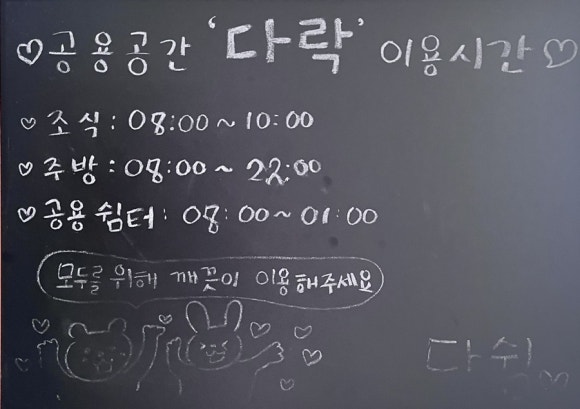 ♡공용공간 '다락' 이용시간♡
♡ 조식: 08:00~10:00
♡ 주방: 08:00~22:00
♡ 공용쉼터: 08:00~01:00
모두를 위해 깨끗이 이용해주세요
다쉼